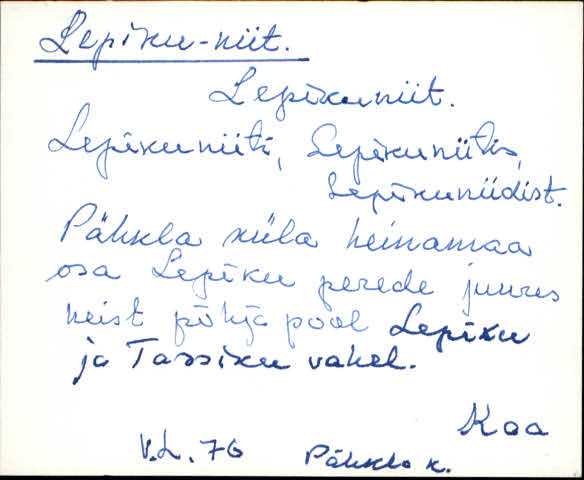 Lepiku-niit.
Lepikuniit.
Lepikuniiti, Lepikuniitis,
Lepikuniidist.
Pähkla küla heinamaa
osa Lepiku perede juures
neist põhja pool Lepiku
ja Tassiku vahel.
Kaa
V.L. 76 Pähkla k.